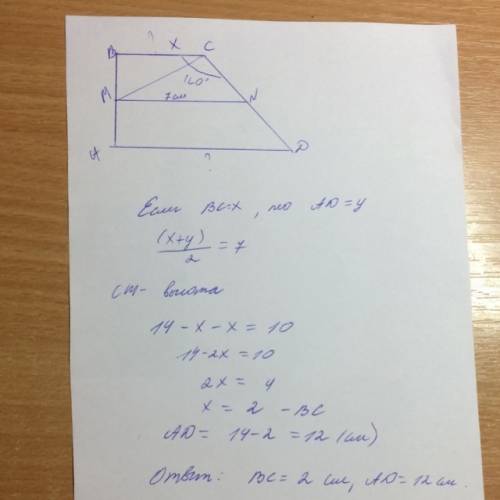 ?
B X C
140°
M 7 см N
A ? D
Если BC=x, то AD=y
(x+y)/2 = 7
CM- высота
14-x-x=10
14-2x=10
2x= 4
x= 2 -BC
AD= 14-2 =12 (см)
Ответ: BC= 2 см, AD=12 см.